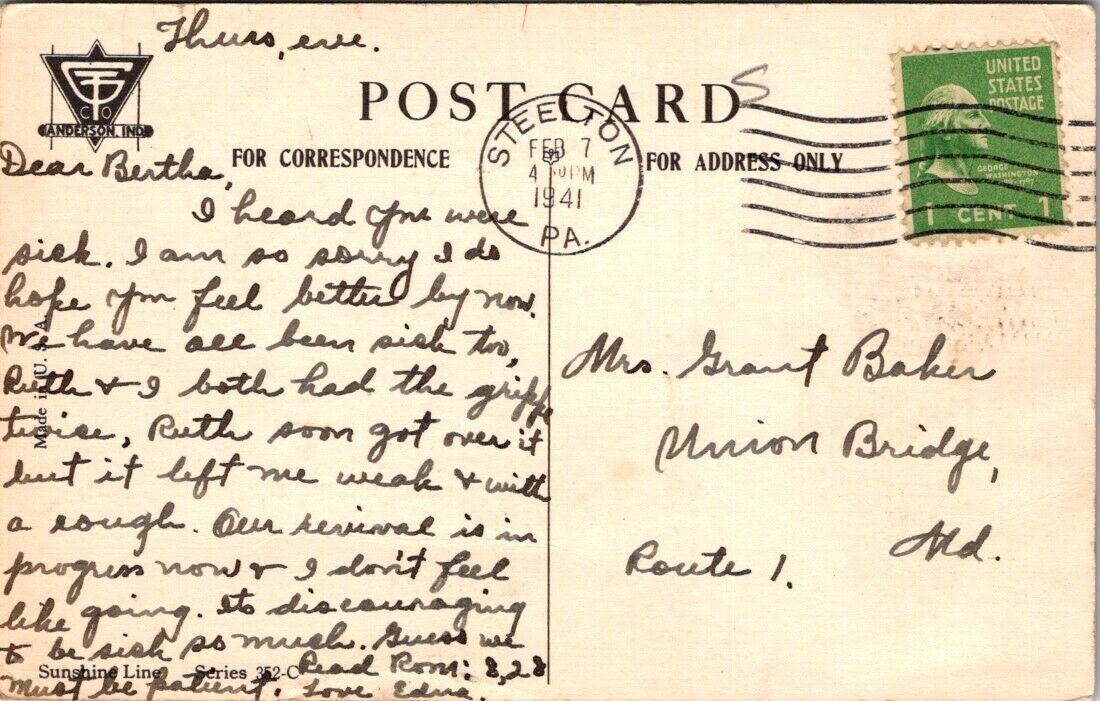 Thurs, eve.
GTS CO
ANDERSON, IND.
POST CARD
S
FOR CORRESPONDENCE
FOR ADDRESS ONLY
STEELTON
FEB 7
4 PM
1941
PA.
UNITED
STATES
POSTAGE
GEORGE
WASHINGTON
1 CENT 1
Dear Bertha,
I heard you were
sick. I am so sorry I do
hope you feel better by now.
We have all been sick too,
Ruth & I both had the grippe
twice, Ruth soon got over it
but it left me weak & with
a cough. Our revival is in
progress now & I don't feel
like going. Its discouraging
to be sick so much. Guess we
must be patient. Read Rom: 8,28
Love Edna.
Made in U. S. A.
Sunshine Line Series 352-C
Mrs. Grant Baker
Union Bridge,
Md.
Route 1.